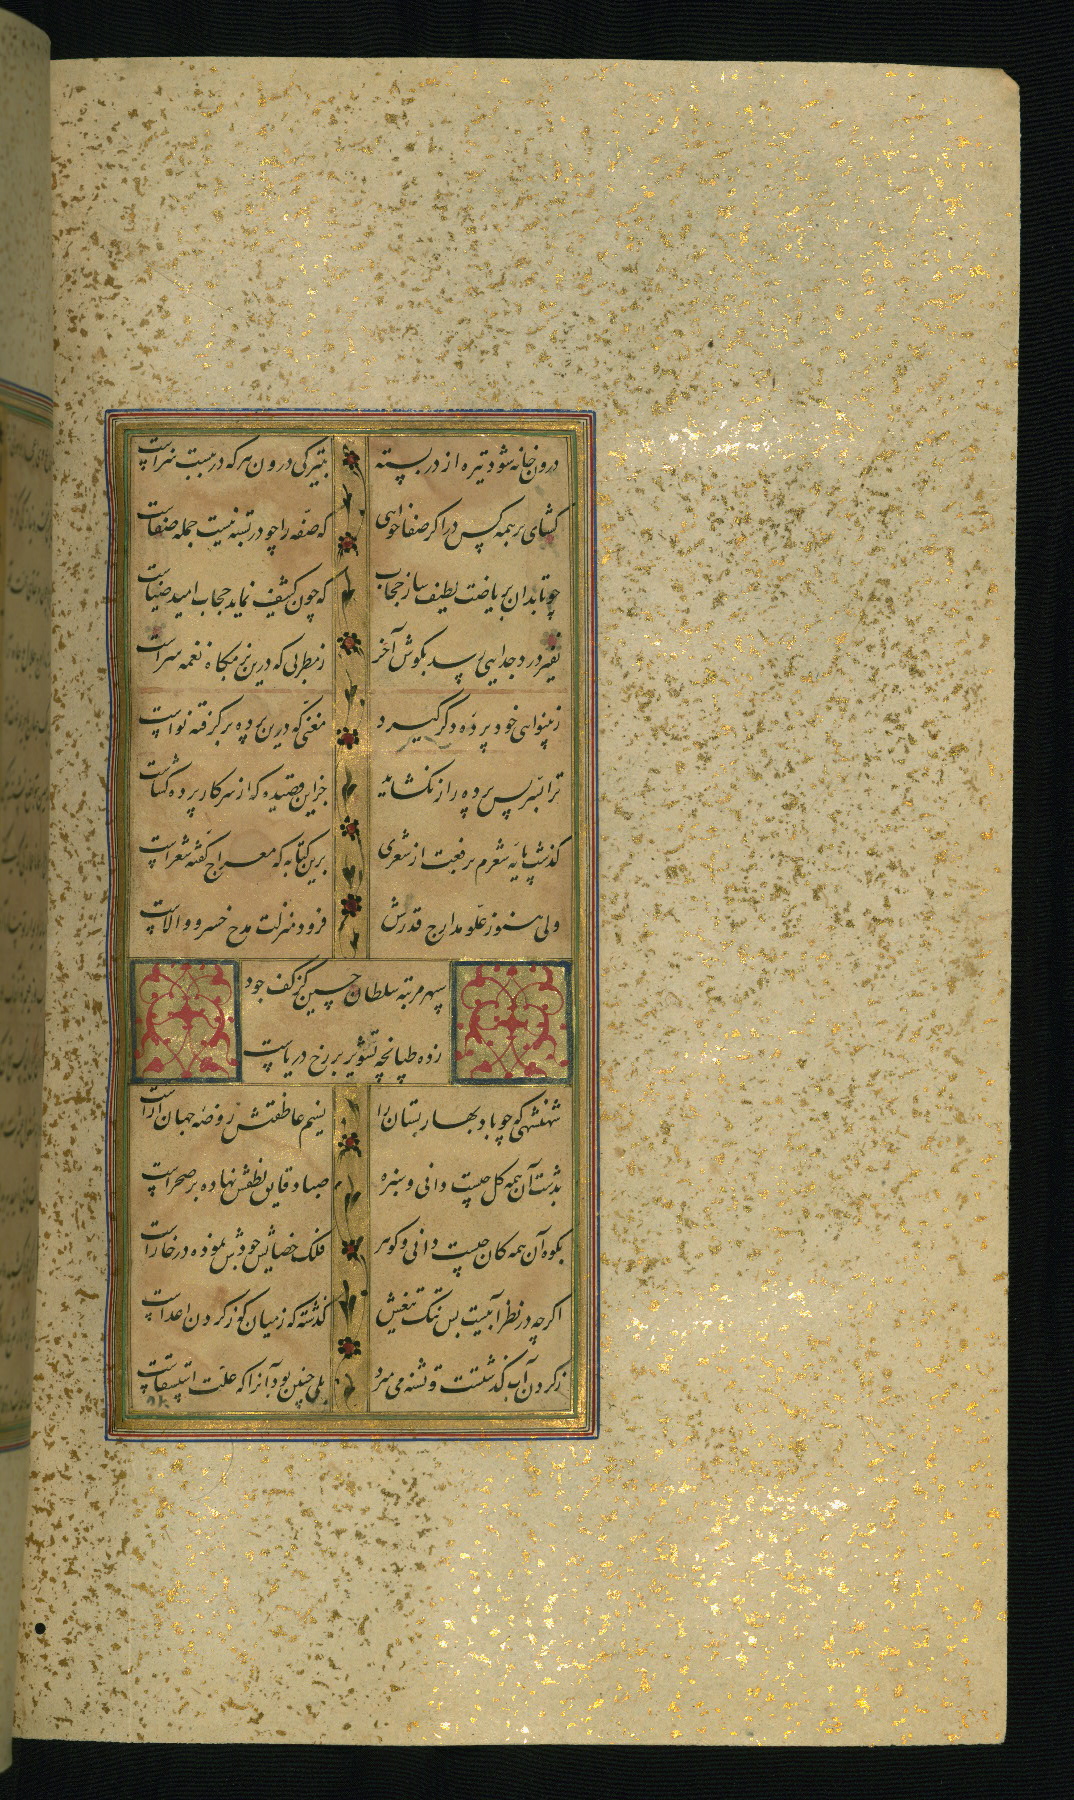 درون خانه شود تیره از در بسته
بتیرگی درون هر که در ببست سزاست
گشای بر همه کس در اگر صفا خواهی
که صفه را چو در بسته نیست جمله صفاست
چو تابد ان بریاضت لطیف ساز حجاب
که چون کثیف نماید حجاب امید ضیاست
نفیر درد جدایی رسد بگوش آخر
زمطربی که درین بزمگاه نغمه سراست
زبینوایی خود پرده دگر گیرد
مغنی که درین پرده برگرفته نواست
ترا بسر پس پرده راز نگشاید
جز این قصیده که از سر کار پرده گشاست
گذشت پایه شعرم برفعت از شعری
برین کتابه که معراج گفته شعراست
ولی هنوز علو مدارج قدرش
فرود منزلت مدح خسرو والاست
سپهر مرتبه سلطان حسین کز کف جود
زده طپانچه تشویر بر رخ دریاست
شهنشهی که چو باد بهار بستان را
نسیم عاطفتش روضه جهان آراست
بدشت آن همه گل چیست دانی و سبزه
صبا دقایق لطفش نهاده بر صحراست
بکوه آن همه کان چیست دانی و گوهر
فلک خصایص جودش نموده در خاراست
اگرچه در نظر آبیست بس تنک تیغش
گذشته گه ز میان گه ز گردن اعداست
ز گردن آب گذشتست و تشنه می میرد
بلی چنین بود آنرا که علت استسقاست